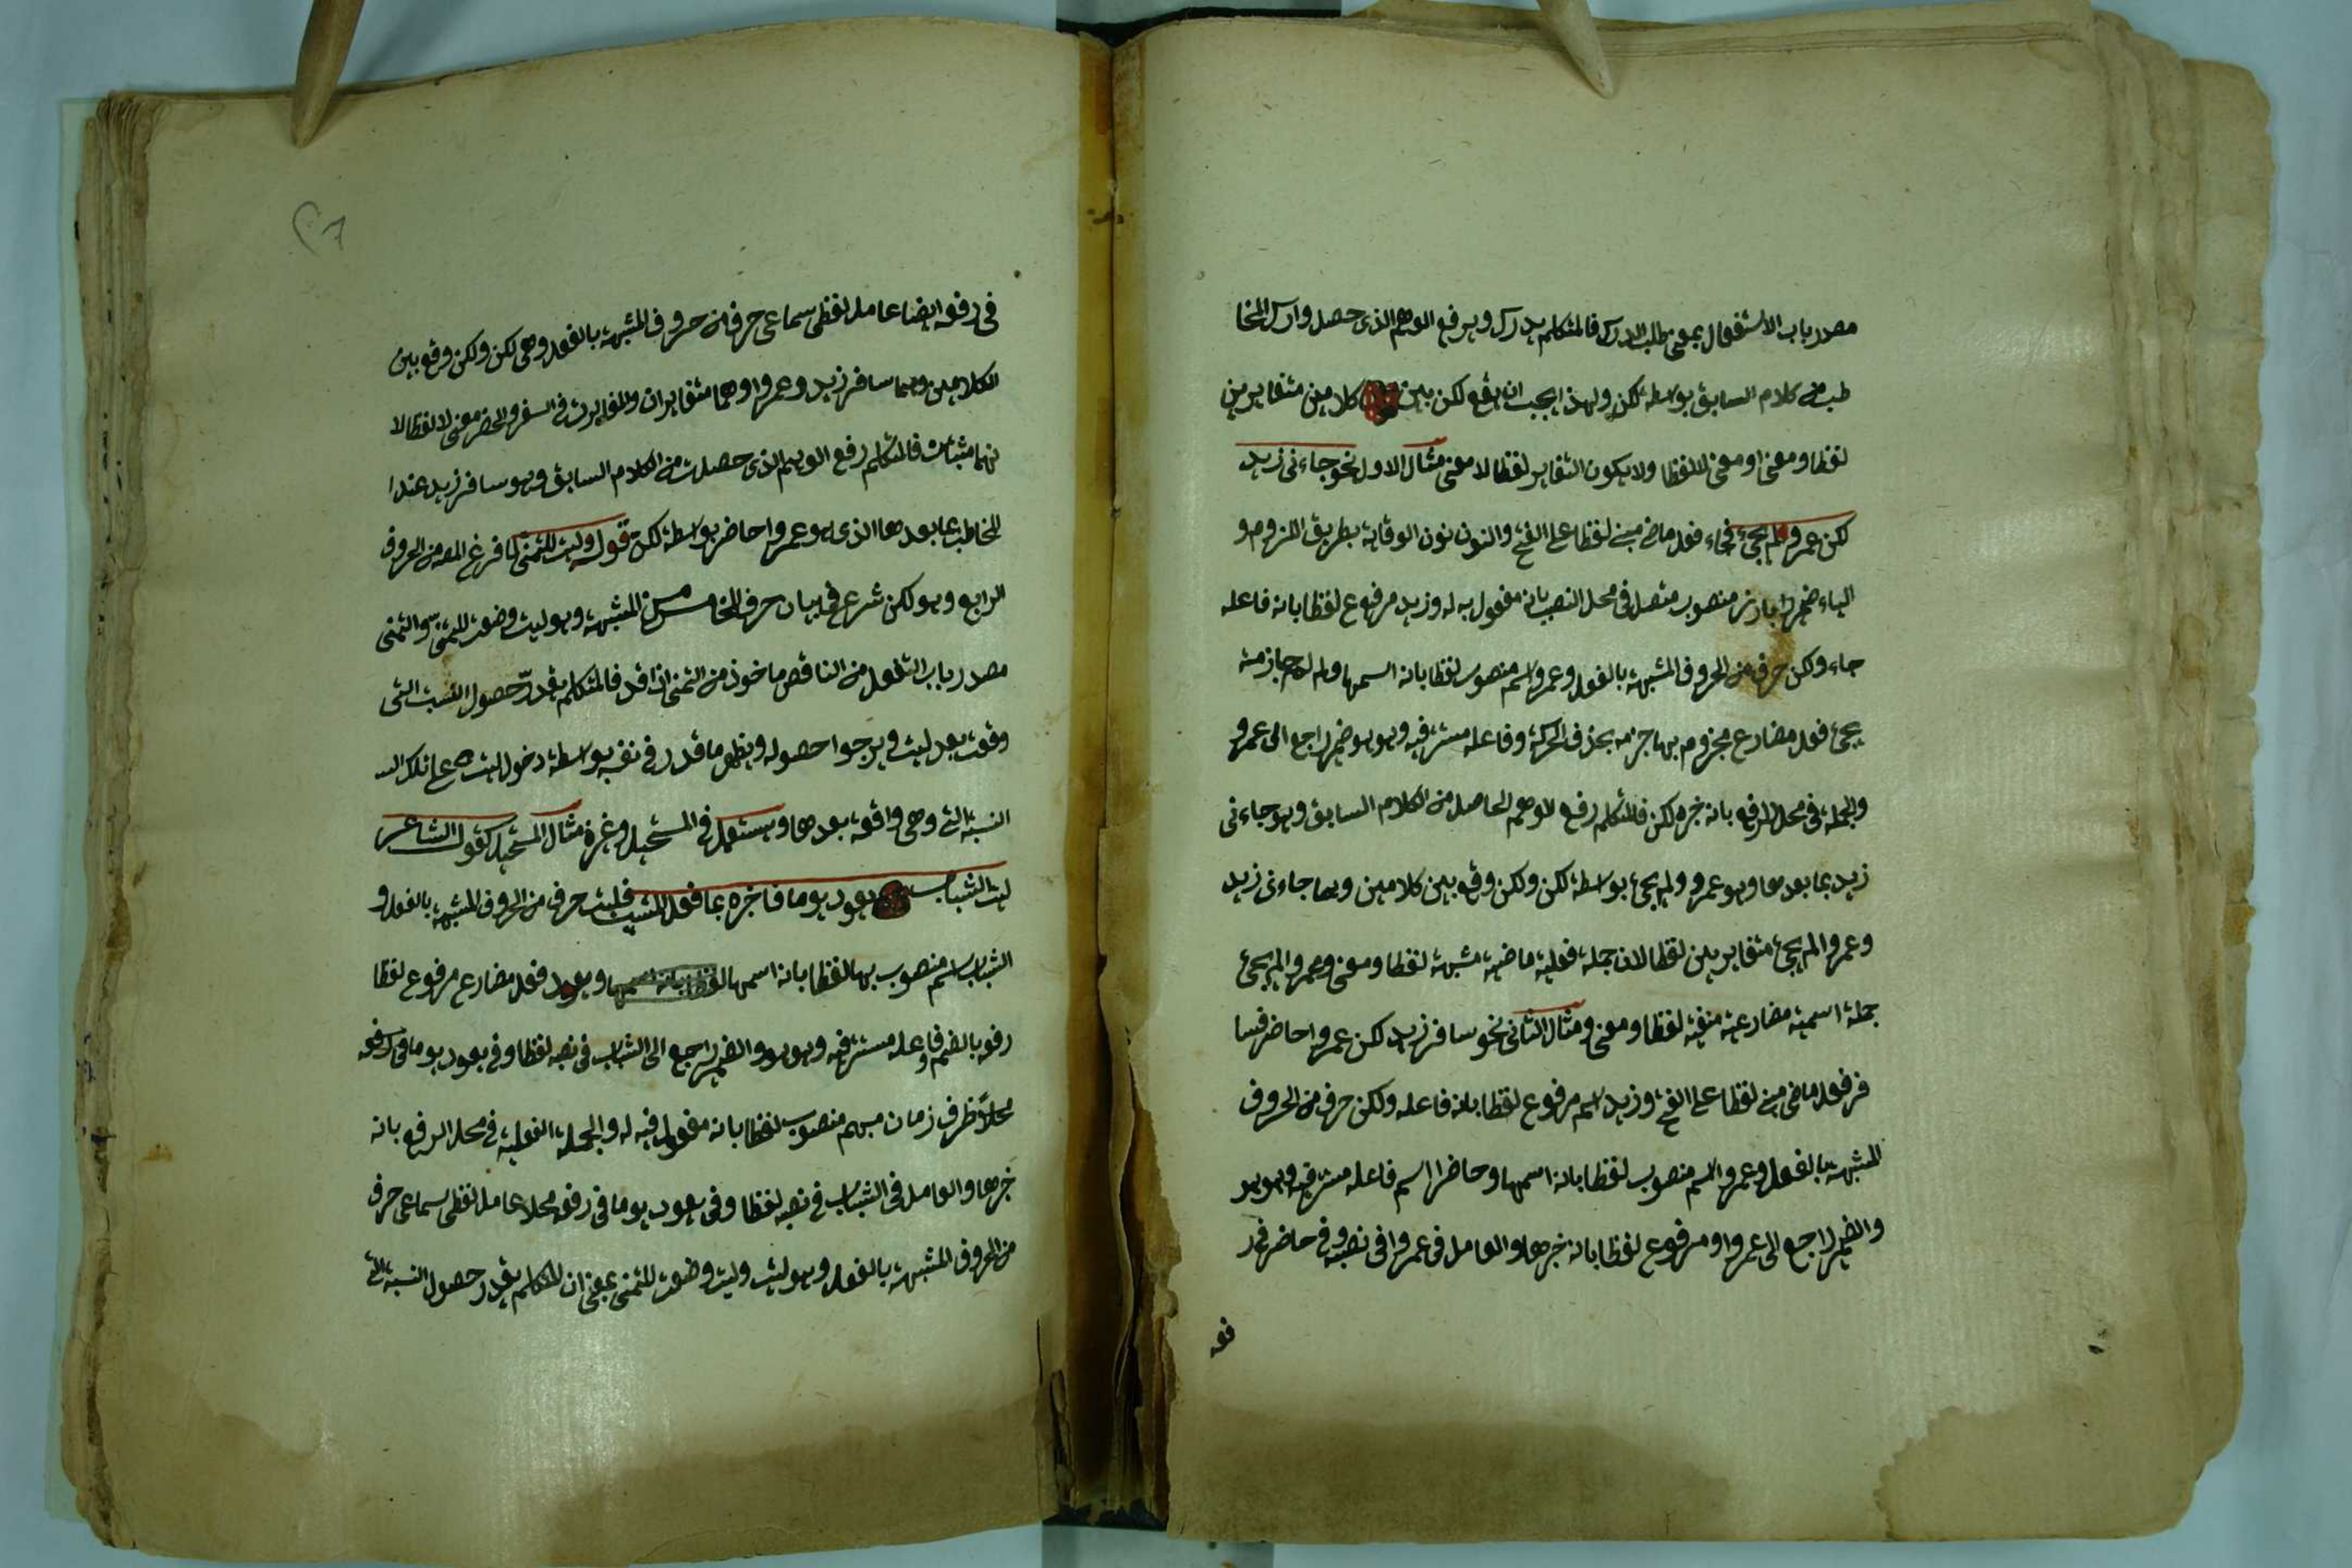 مصدر باب الاستفعال بمعنى طلب الدرك فالمتكلم يدرك ويرفع الوهم الذى حصل وارك المخا
طب من كلام السابق بواسطة لكن ولهذا يجب ان يقع لكن بين كلامين متغايرين
لفظا ومعنى او معنى لا لفظا ولا يكون التغاير لفظا لا معنى مثال الاول نحو جاءنى زيد
لكن عمرو لم يجئ فجاء فعل ماض مبنى لفظا على الفتح والنون نون الوقاية بطريق اللزوم و
الياء ضمير بارز منصوب متصل فى محل النصب بانه مفعول به له وزيد مرفوع لفظا بانه فاعله
جاء ولكن حرف من الحروف المشبهة بالفعل وعمروا اسم منصوب لفظا بانه اسمها ولم لم جازمة
يجئ فعل مضارع مجزوم بها جزمه بحذف الحركة وفاعله مستتر فيه وهو هو ضمير راجع الى عمرو
والجملة فى محل الرفع بانه خبره لكن فالمتكلم رفع الوهم الحاصل من الكلام السابق وهو جاءنى
زيد بما بعدها وهو عمرو ولم يجئ بواسطة لكن ولكن وقع بين كلامين وهما جاءنى زيد
وعمروا لم يجئ متغايرين لفظا لان جملة فعلية ماضية مثبتة لفظا ومعنى وعمروا لم يجئ
جملة اسمية مضارعية منفية لفظا ومعنى ومثال الثانى نحو سافر زيد لكن عمروا حاضر فسا
فر فعل ماض مبنى لفظا على الفتح وزيد اسم مرفوع لفظا بانه فاعله ولكن حرف من الحروف
المشبهة بالفعل وعمروا اسم منصوب لفظا بانه اسمها وحاضرا اسم فاعله مستتر فيه وهو هو
والضمير راجع الى عمروا ومرفوع لفظا بانه خبرها والعامل فى عمروا فى نصبه وفى حاضر فى ر
فعه
فى رفعه ايضا عامل لفظى سماعى حرف من حروف المشبهة بالفعل وهى لكن ولكن وقع بين
الكلامين وهما سافر زيد وعمروا وهما متغايران والمغايرت فى السفر والحضر معنى لا لفظا لا
نهما مثبتان فالمتكلم رفع الوهم الذى حصلت من الكلام السابق وهو سافر زيد عندا
لمخاطب بما بعدها الذى هو عمروا حاضر بواسطة لكن قوله وليت للتمنى لما فرغ المصه من الحروف
الرابع وهو لكن شرع فى بيان حرف الخامس من المشبهة وهو ليت وضعت للتمنى والتمنى
مصدر باب التفعل من الناقص ماخوذ من التمنى اذا قد فالمتكلم يقدر حصول النسبت التى
وقعت بعد ليت ويرجوا حصوله ويظهر ما قدر فى نفسه بواسطة دخول ليت على تلك النسـ
النسبة التى وهى واقعة بعدها ويستعمل فى المستحيل وغيره مثال المستحيل كقول الشاعر
ليت الشباب يعود يوما فاخبره بما فعل المشيب فليت حرف من الحروف المشبهة بالفعل و
الشباب اسم منصوب بها لفظا بانه اسمها لفظا بانه اسمها ويعود فعل مضارع مرفوع لفظا
رفعه بالضم وفاعله مستتر فيه وهو هو والضمير راجع الى الشباب فى نصبه لفظا وفى يعود يوما فى رفعه
محلا ظرف زمان مبهم منصوب لفظا بانه مفعول فيه له والجملة الفعلية فى محل الرفع بانه
خبرها والعامل فى الشباب فى نصبه لفظا وفى يعود يوما فى رفعه محلا عامل لفظى سماعى حرف
من الحروف المشبهة بالفعل وهو ليت وليت وضعت للتمنى بمعنى ان المتكلم يقدر حصول النسبة التى